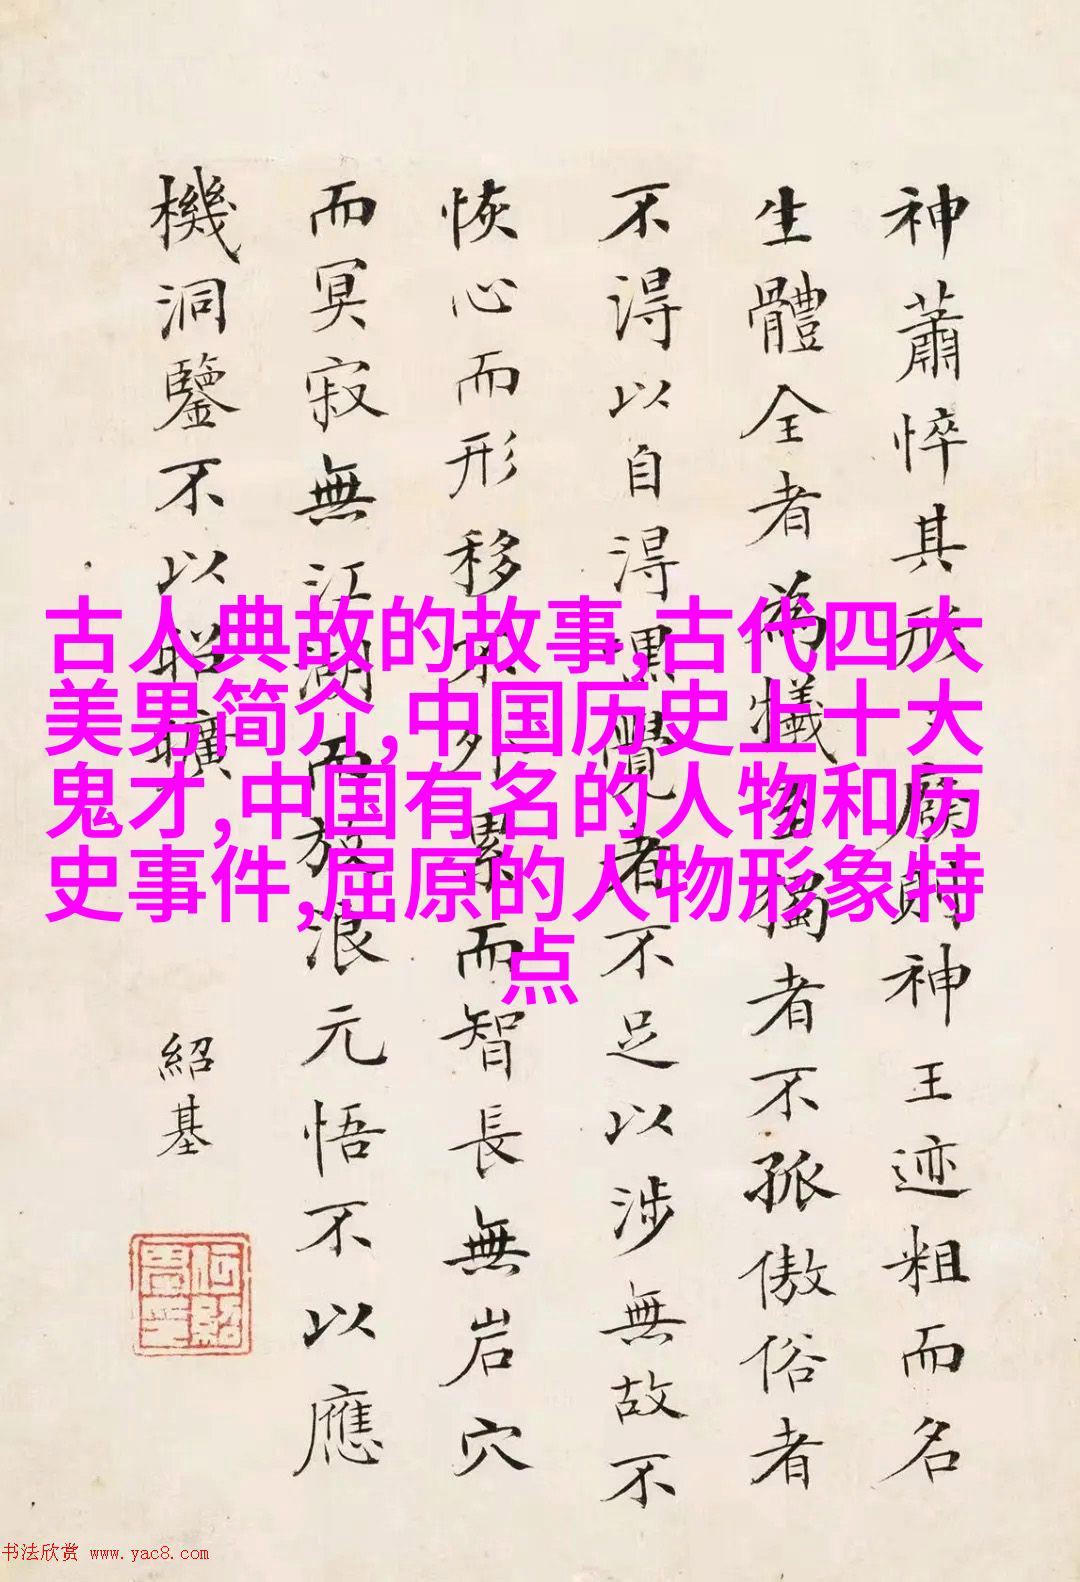 神蕭悴其形廢則神王迹粗而名
生體全者為犧至獨者不孤傲俗者
不得以自得嘿覺者不足以涉無故不
恢心而形移不外累而智長無岩穴
而冥寂無江湖而放浪元悟不以應
機洞鑒不以昭曠
紹基
古人典故的故事,古代四大
美男简介,中国历史上十大
鬼才,中国有名的人物和历
史事件,屈原的人物形象特
点
书法欣赏 www.yac8.com